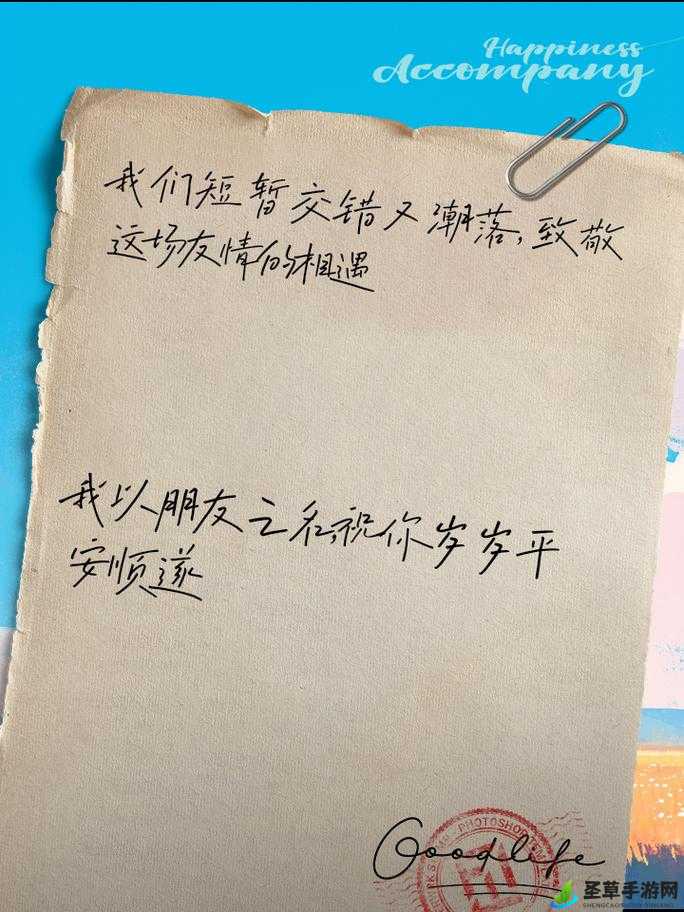 Happiness
Accompany
我们短暂交错又潮落,致敬
这场友情的相遇
我以朋友之名,祝你岁岁平
安顺遂
PHOTOSHOP
Goodlife
圣草手游网
SHENGCAOSHOUYOUWANG